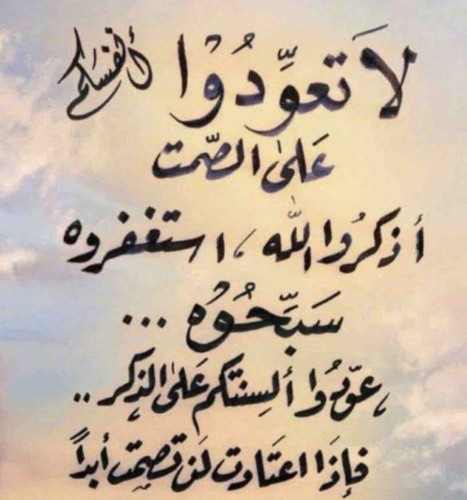 لَا تعوِّدُوْا أنفسَكم
عَلىٰ الصّمت
أذكرُوا اللّٰه ، استغفروه
سَبِّحُوُه ...
، عوّدُوا ألسِنتكم عَلىٰ الذِكر ..
فإذَا اعتَادت لَن تصمِت أبداً